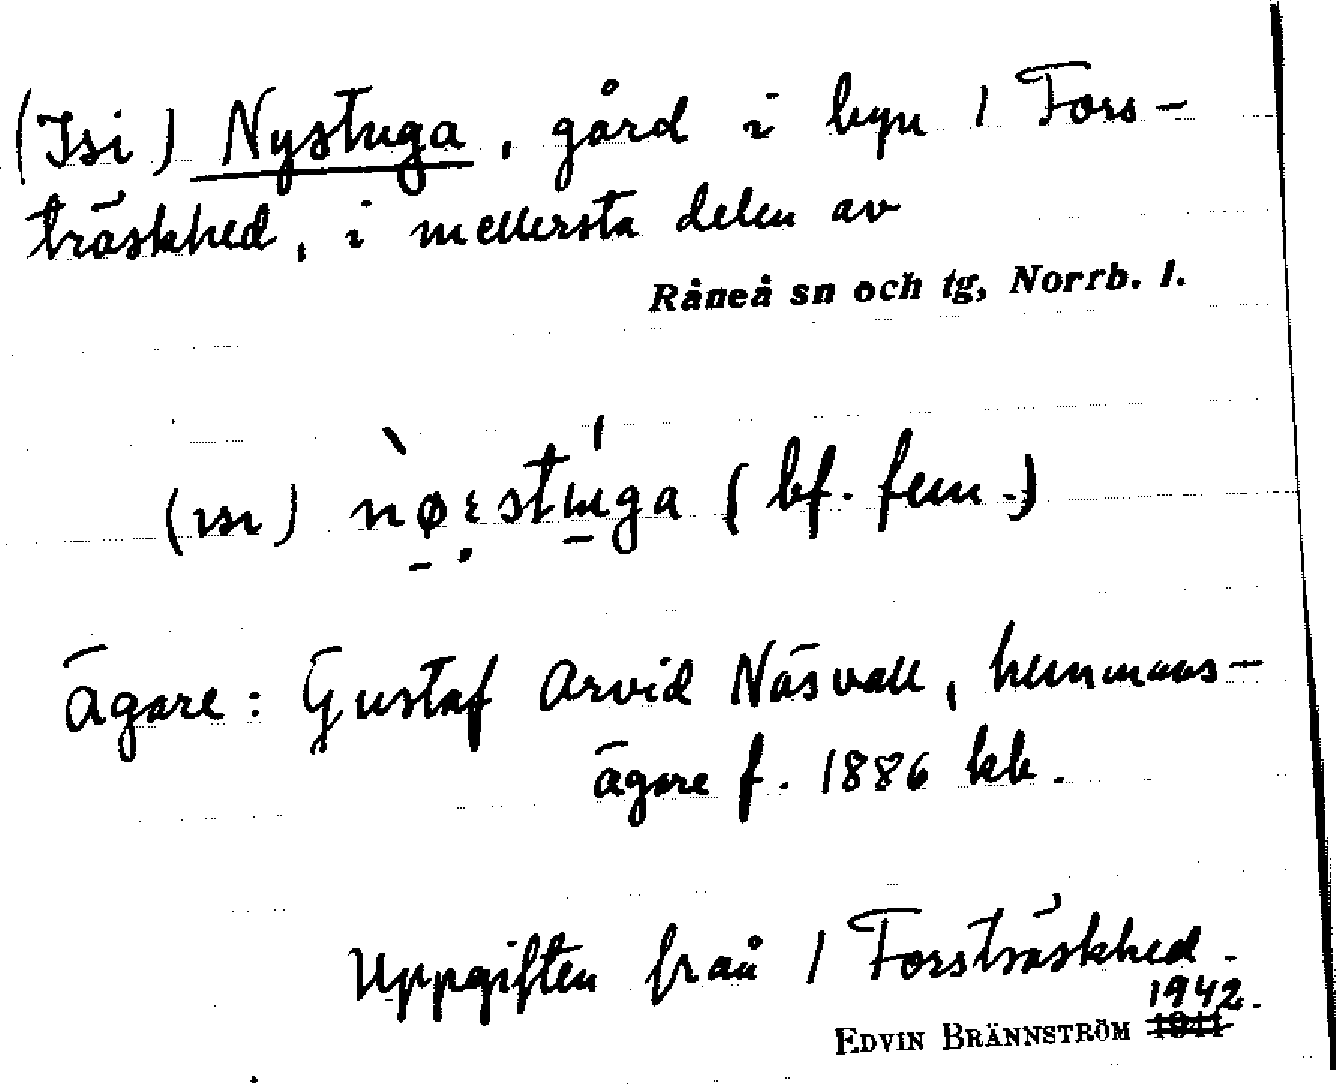 (Isi) Nystuga, gård i byn 1 Fors-
träskhed, i mellersta delen av
Råneå sn och tg, Norrb. l.
(ɪsɪ) nø̱ːstu̱ga (bf. fem.)
Ägare: Gustaf Arvid Näsvall, hemmans-
ägare f. 1886 hh.
Uppgiften från 1 Forsträskhed.
1942.
EDVIN BRÄNNSTRÖM 1941